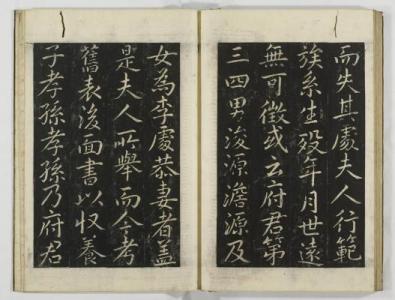 而失其處夫人行範
族系生殁年月世遠
無可徵或云府君第
三四男浚源澹源及
女為李處恭妻者蓋
是夫人所舉而今考
舊表後面書以収養
子孝孫孝孫乃府君